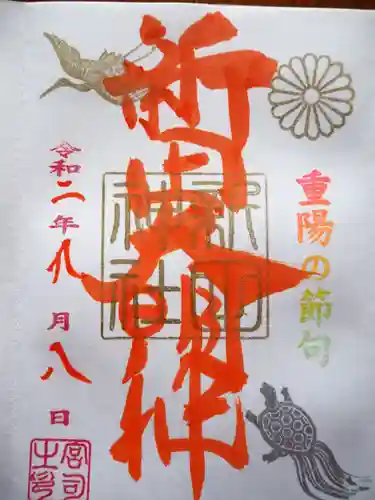 重陽の節句
新田大明神
新田
神社
令和二年九月八日
宮司
之印